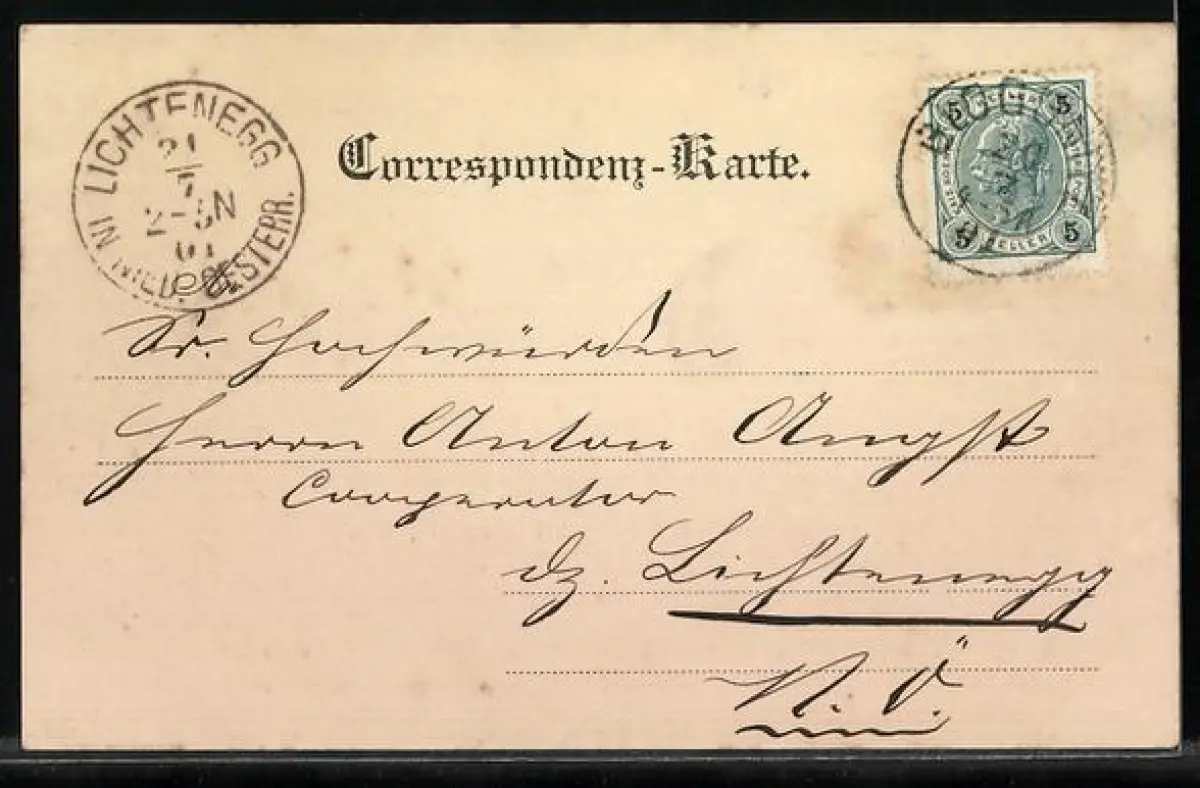 LICHTENEGG
21
7
2-5N
01
IN NIED. OESTERR.
Correspondenz-Karte.
5 5
5 HELLER 5
Sr. Hochwürden
Herrn Anton Angst
Cooperator
dz. Lichtenegg
N. Ö.